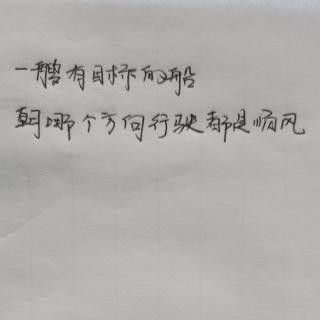 一艘有目标的船
朝哪个方向行驶都是顺风